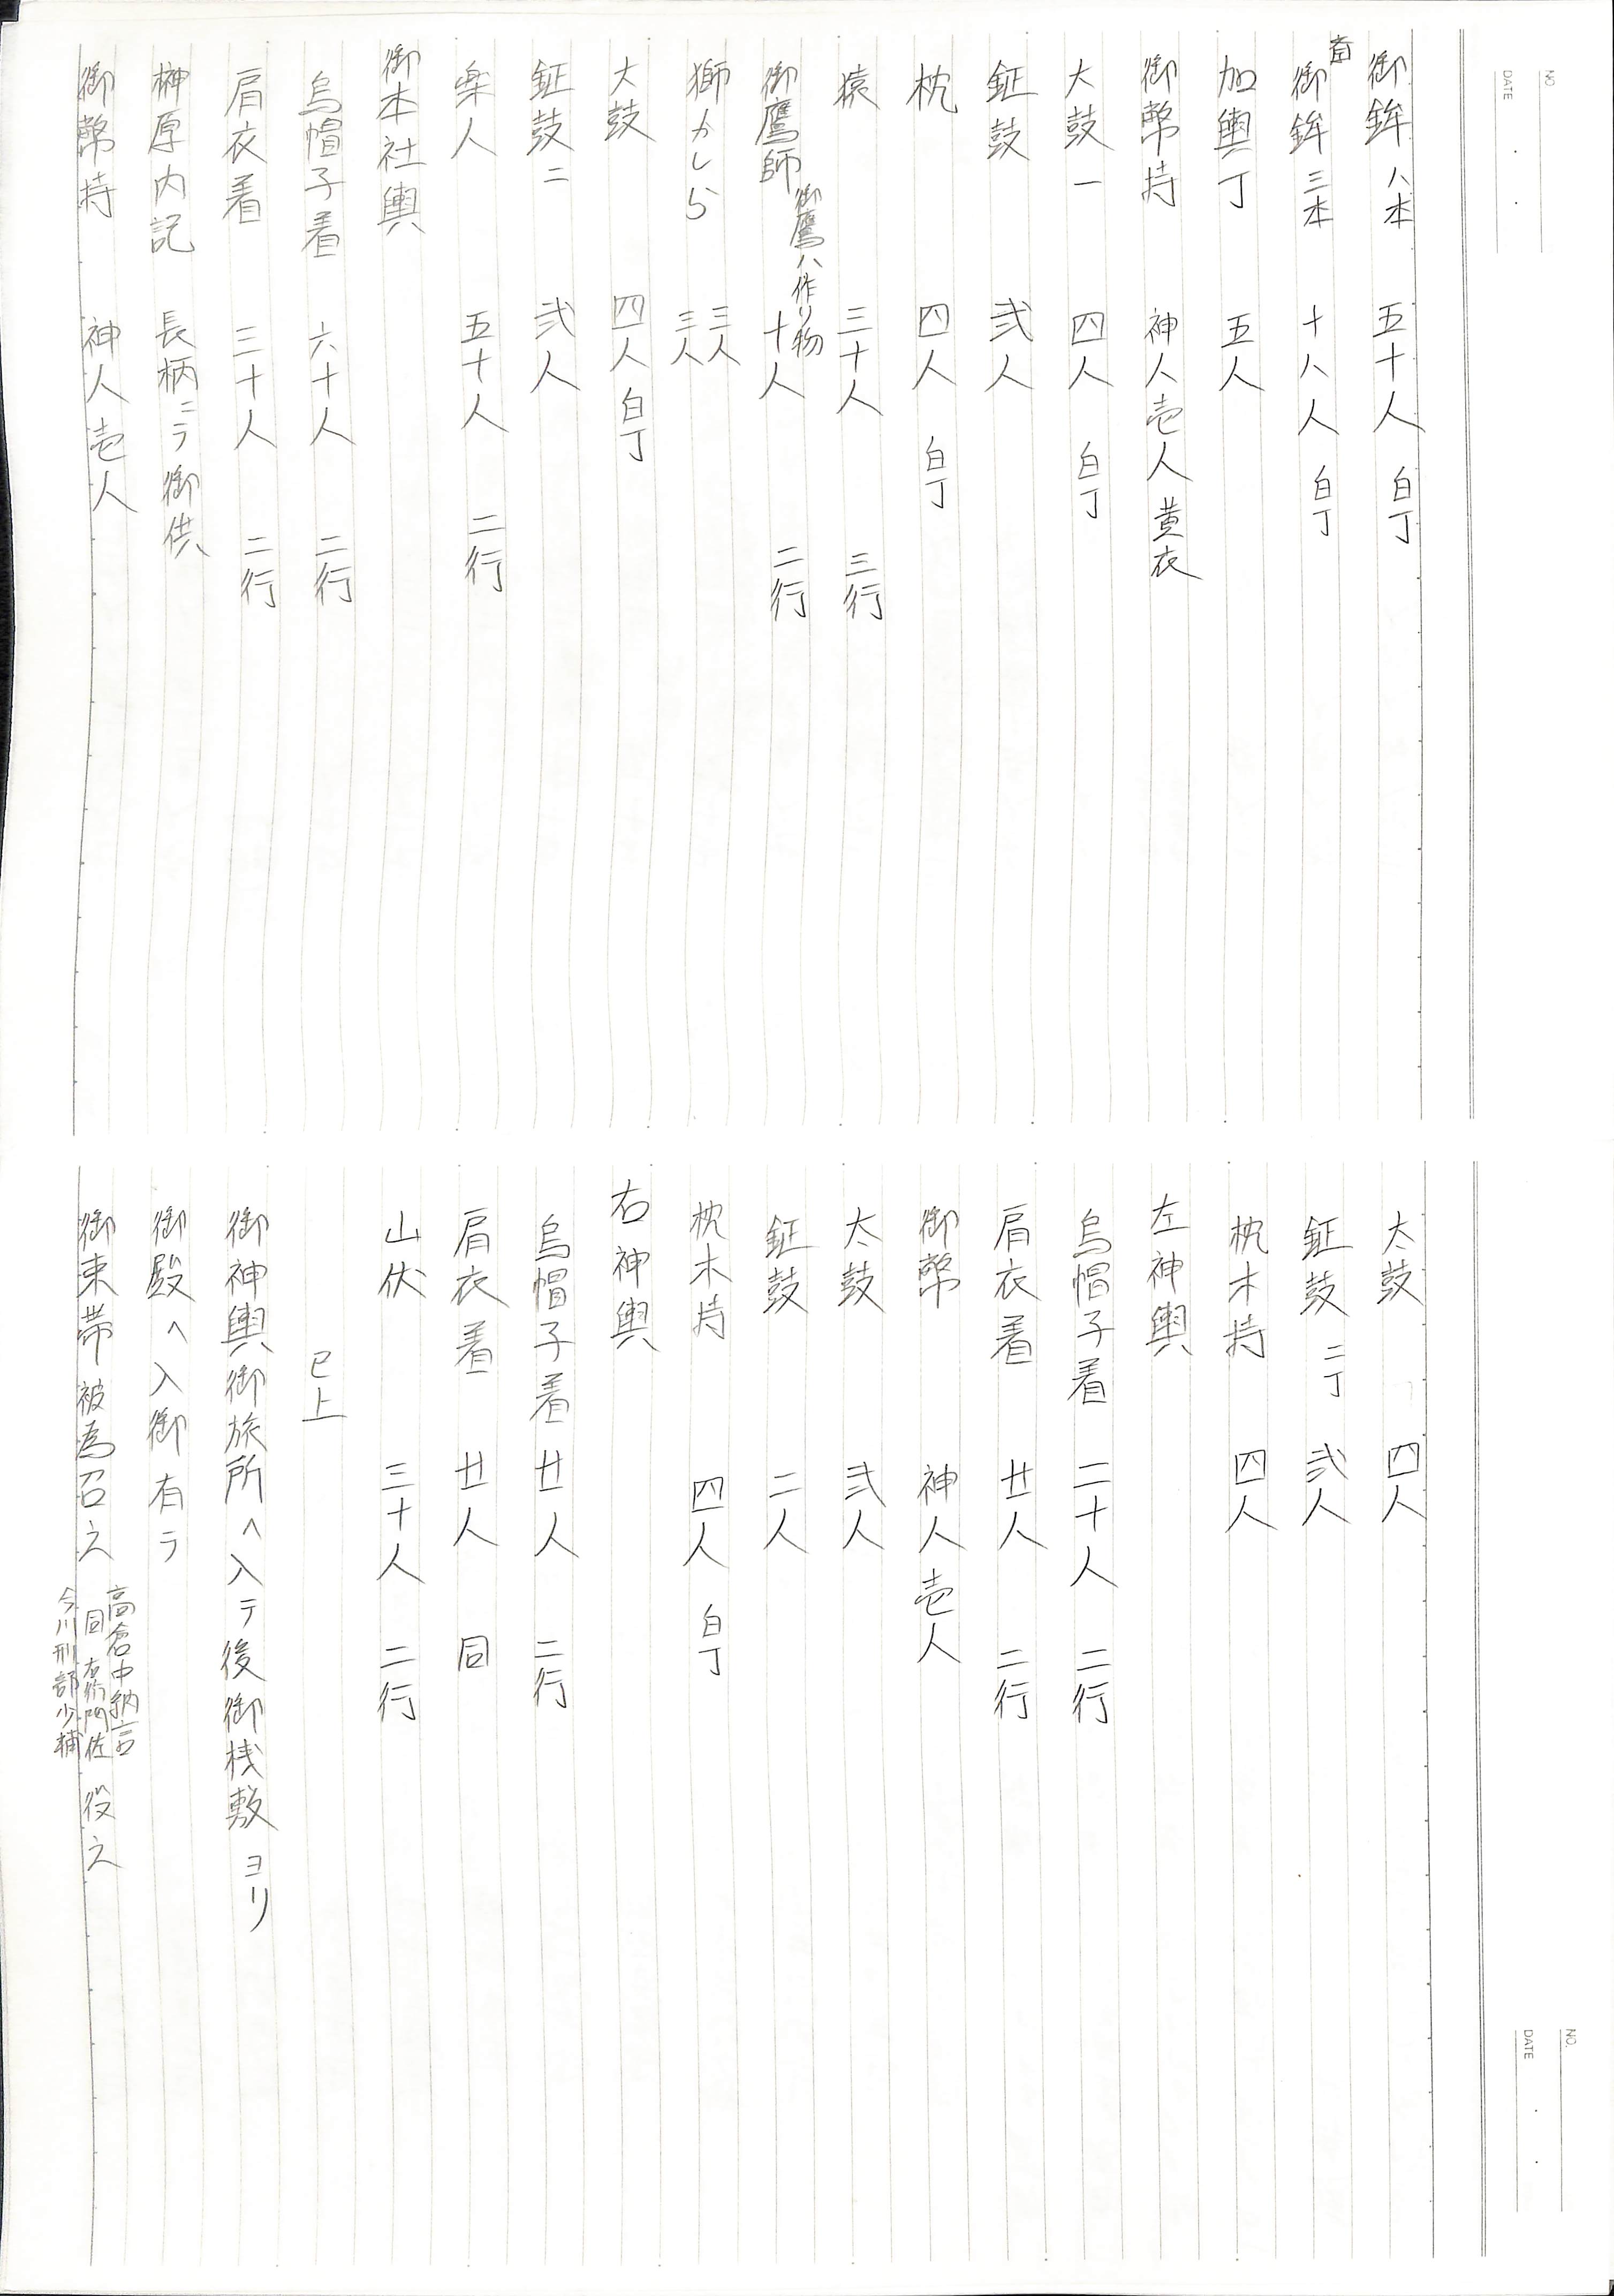 NO
DATE
御鉾 八本 五十人 白丁
御鉾 三本 十八人 白丁
加輿丁 五人
御幣持 神人壱人 黄衣
大鼓一 四人 白丁
鉦鼓 弐人
枕 四人 白丁
猿 三十人 三行
御鷹師 御鷹ハ作り物 十人 二行
獅かしら 三人 三人
大鼓 四人 白丁
鉦鼓二 弐人
楽人 五十人 二行
御本社輿
烏帽子着 六十人 二行
肩衣着 三十人 二行
榊原内記 長柄ニテ御供
御幣持 神人壱人
NO.
DATE
太鼓 四人
鉦鼓 二丁 弐人
枕木持 四人
左神輿
烏帽子着 二十人 二行
肩衣着 廿人 二行
御幣 神人壱人
太鼓 弐人
鉦鼓 二人
枕木持 四人 白丁
右神輿
烏帽子着 廿人 二行
肩衣着 廿人 同
山伏 三十人 二行
已上
御神輿御旅所へ入テ後御桟敷ヨリ
御殿へ入御有テ
御束帯被為召之 高倉中納言 同右衛門佐 今川刑部少輔 役之